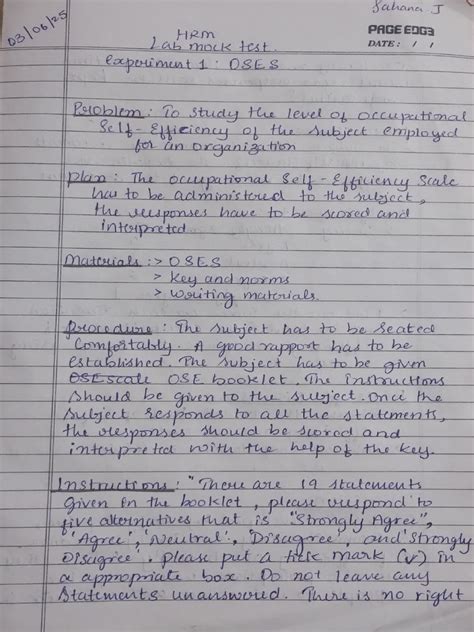 Sahana J
03/06/25
PAGE EDGE
DATE: / /
HRM
Lab mock test.
Experiment 1 : OSES
Problem : To study the level of occupational
Self-Efficiency of the subject employed
for an organization
Plan : The occupational Self-Efficiency Scale
has to be administered to the subject,
the responses have to be scored and
interpreted
Materials :> OSES
> Key and norms
> Writing materials.
Procedure : The subject has to be seated
Comfortably. A good rapport has to be
established. The subject has to be given
OSE scale OSE booklet. The instructions
should be given to the subject. Once the
subject responds to all the statements,
the responses should be scored and
interpreted with the help of the key.
Instructions : "There are 19 statements
given in the booklet, please respond to
five alternatives that is "Strongly Agree",
'Agree', 'Neutral', 'Disagree', and Strongly
Disagree. please put a tick mark (✓) in
a appropriate box. Do not leave any
statements unanswered. There is no right